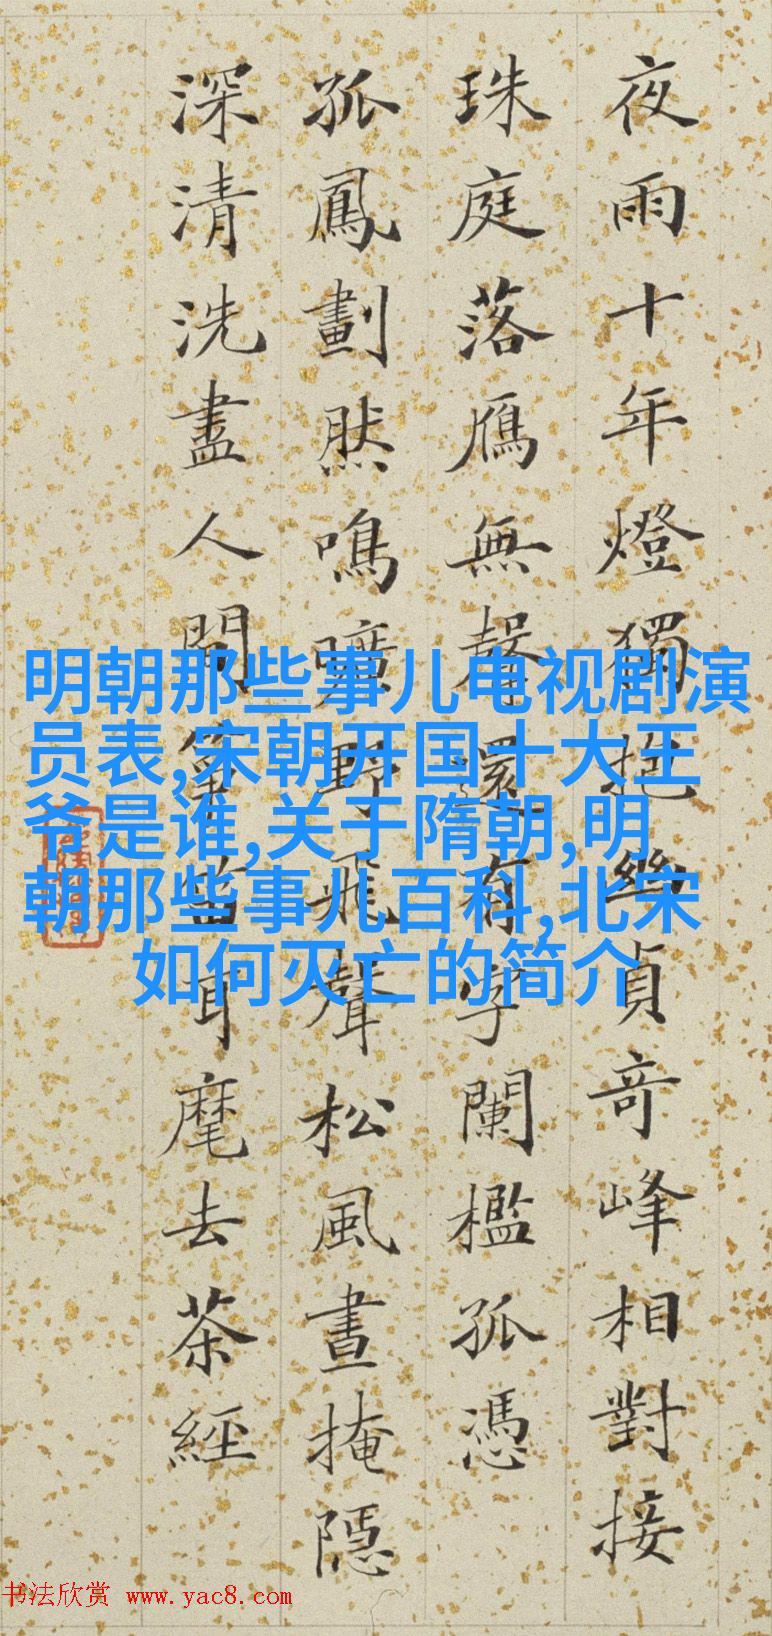 夜雨十年燈獨抱幾貞奇峰相對接
珠庭落鴈無聲還有字闌檻孤憑
孤鳳劃然鳴曠野飛聲松風晝掩隱
深清洗盡人間箏笛耳麾去茶經
明朝那些事儿电视剧演
员表,宋朝开国十大王
爷是谁,关于隋朝,明
朝那些事儿百科,北宋
如何灭亡的简介
书法欣赏 www.yac8.com